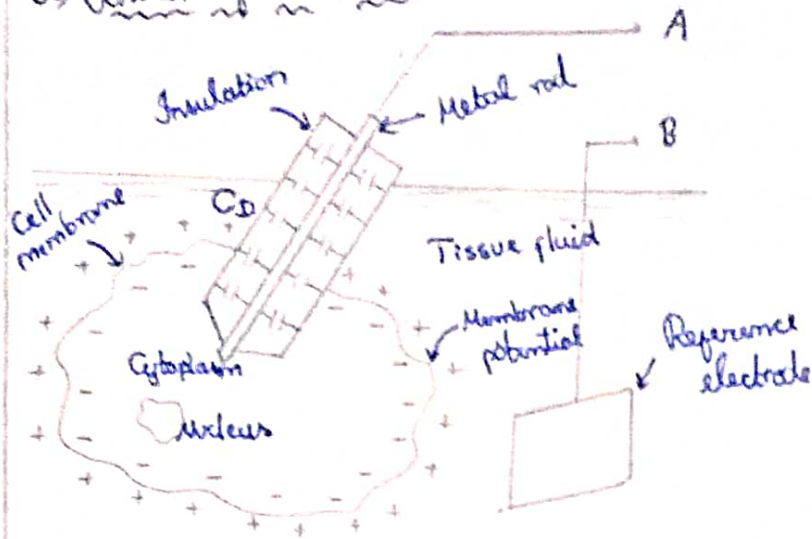 A
Insulation
Metal rod
B
Cell
membrane
CD
Tissue fluid
Membrane
potential
Reference
electrode
Cytoplasm
Nucleus